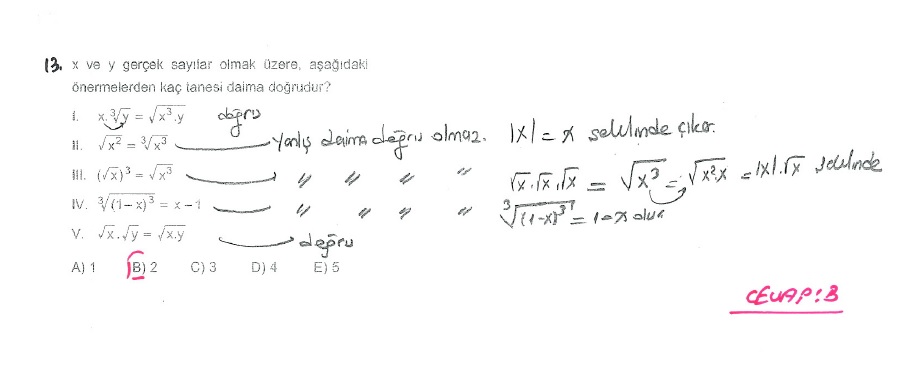 13. x ve y gerçek sayılar olmak üzere, aşağıdaki
önermelerden kaç tanesi daima doğrudur?
I. x.∛y = √x³.y doğru
II. √x² = ∛x³ Yanlış daima doğru olmaz. |x| = x şeklinde çıkar.
III. (√x)³ = √x³ " " " " √x.√x.√x = √x³ = √x².x = |x|.√x şeklinde
IV. ∛(1-x)³ = x-1 " " " " ∛(1-x)³ = 1-x olur
V. √x.√y = √x.y doğru
A) 1 B) 2 C) 3 D) 4 E) 5
CEVAP: B